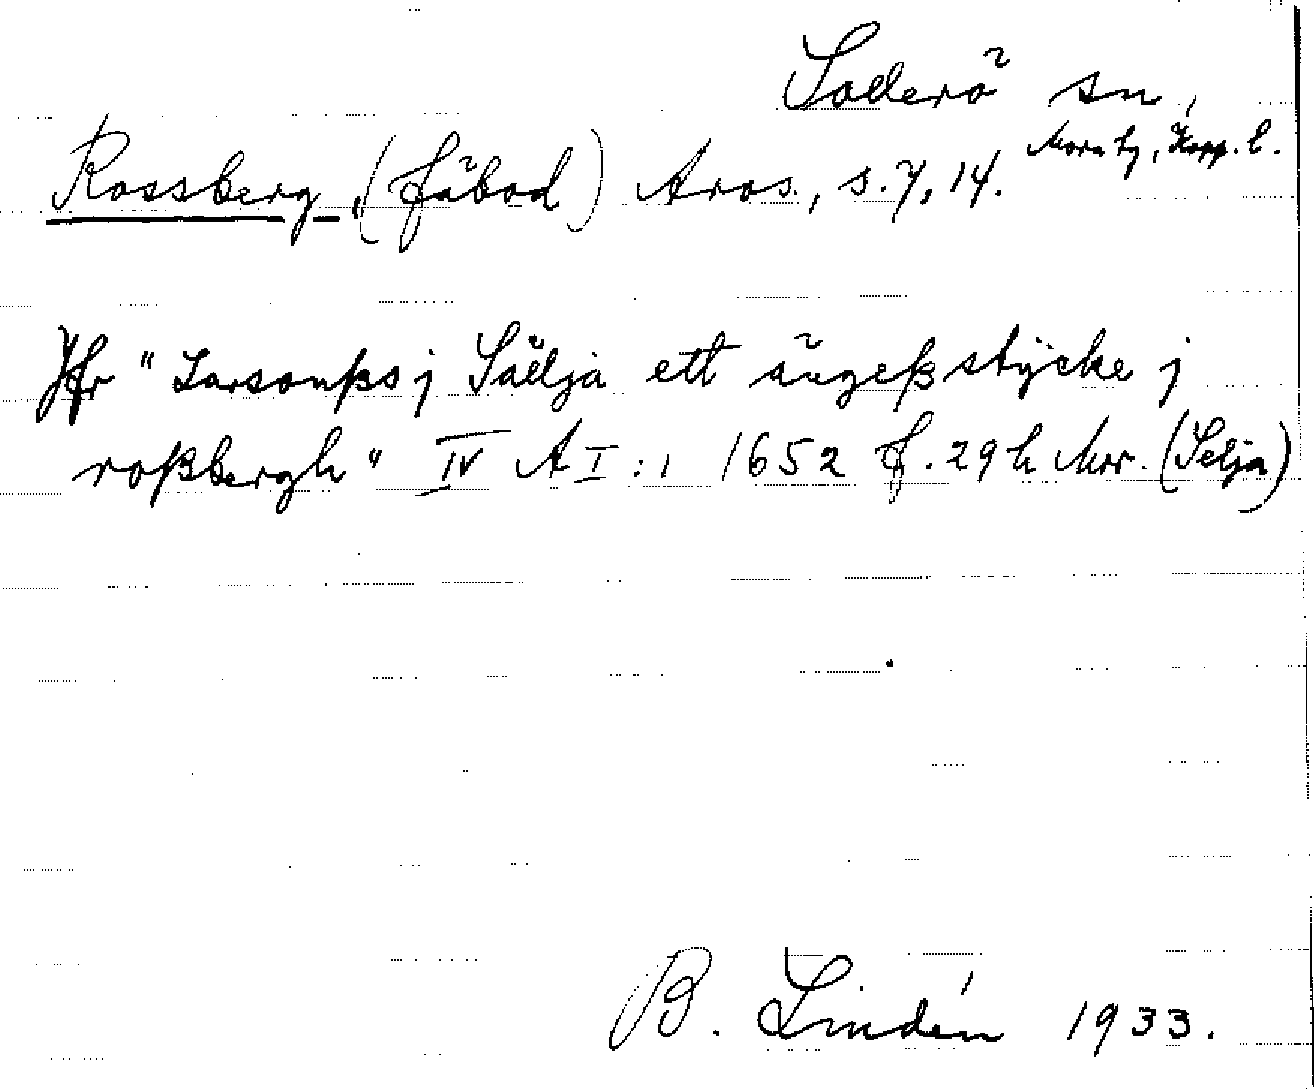 Sollerö sn,
Mora tg, Kopp. l.
Rossberg, (fäbod) Aros., s. 7, 14.
Jfr "Larsonßs j Säelja ett ängeßstÿcke j
roßbergh" IV A I : 1 1652 f. 29 h Mor. (Selja)
B. Lindén 1933.